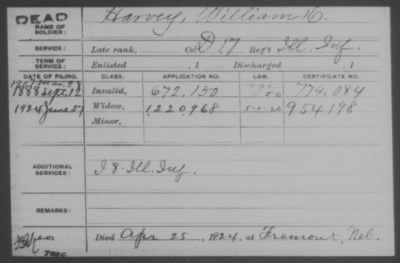 DEAD
NAME OF SOLDIER: Harvey, William H.
SERVICE: Late rank, Co. D 17 Reg't Ill. Inf.
TERM OF SERVICE: Enlisted , 1 Discharged , 1
DATE OF FILING. CLASS. APPLICATION NO. LAW. CERTIFICATE NO.
1888 Sept. 12 Invalid, 672,150 774,084
1924 June 27 Widow, 1,220,968 954,198
Minor,
ADDITIONAL SERVICES: I 8- Ill. Inf.
REMARKS:
Died Apr 25, 1924, at Fremont, Neb.